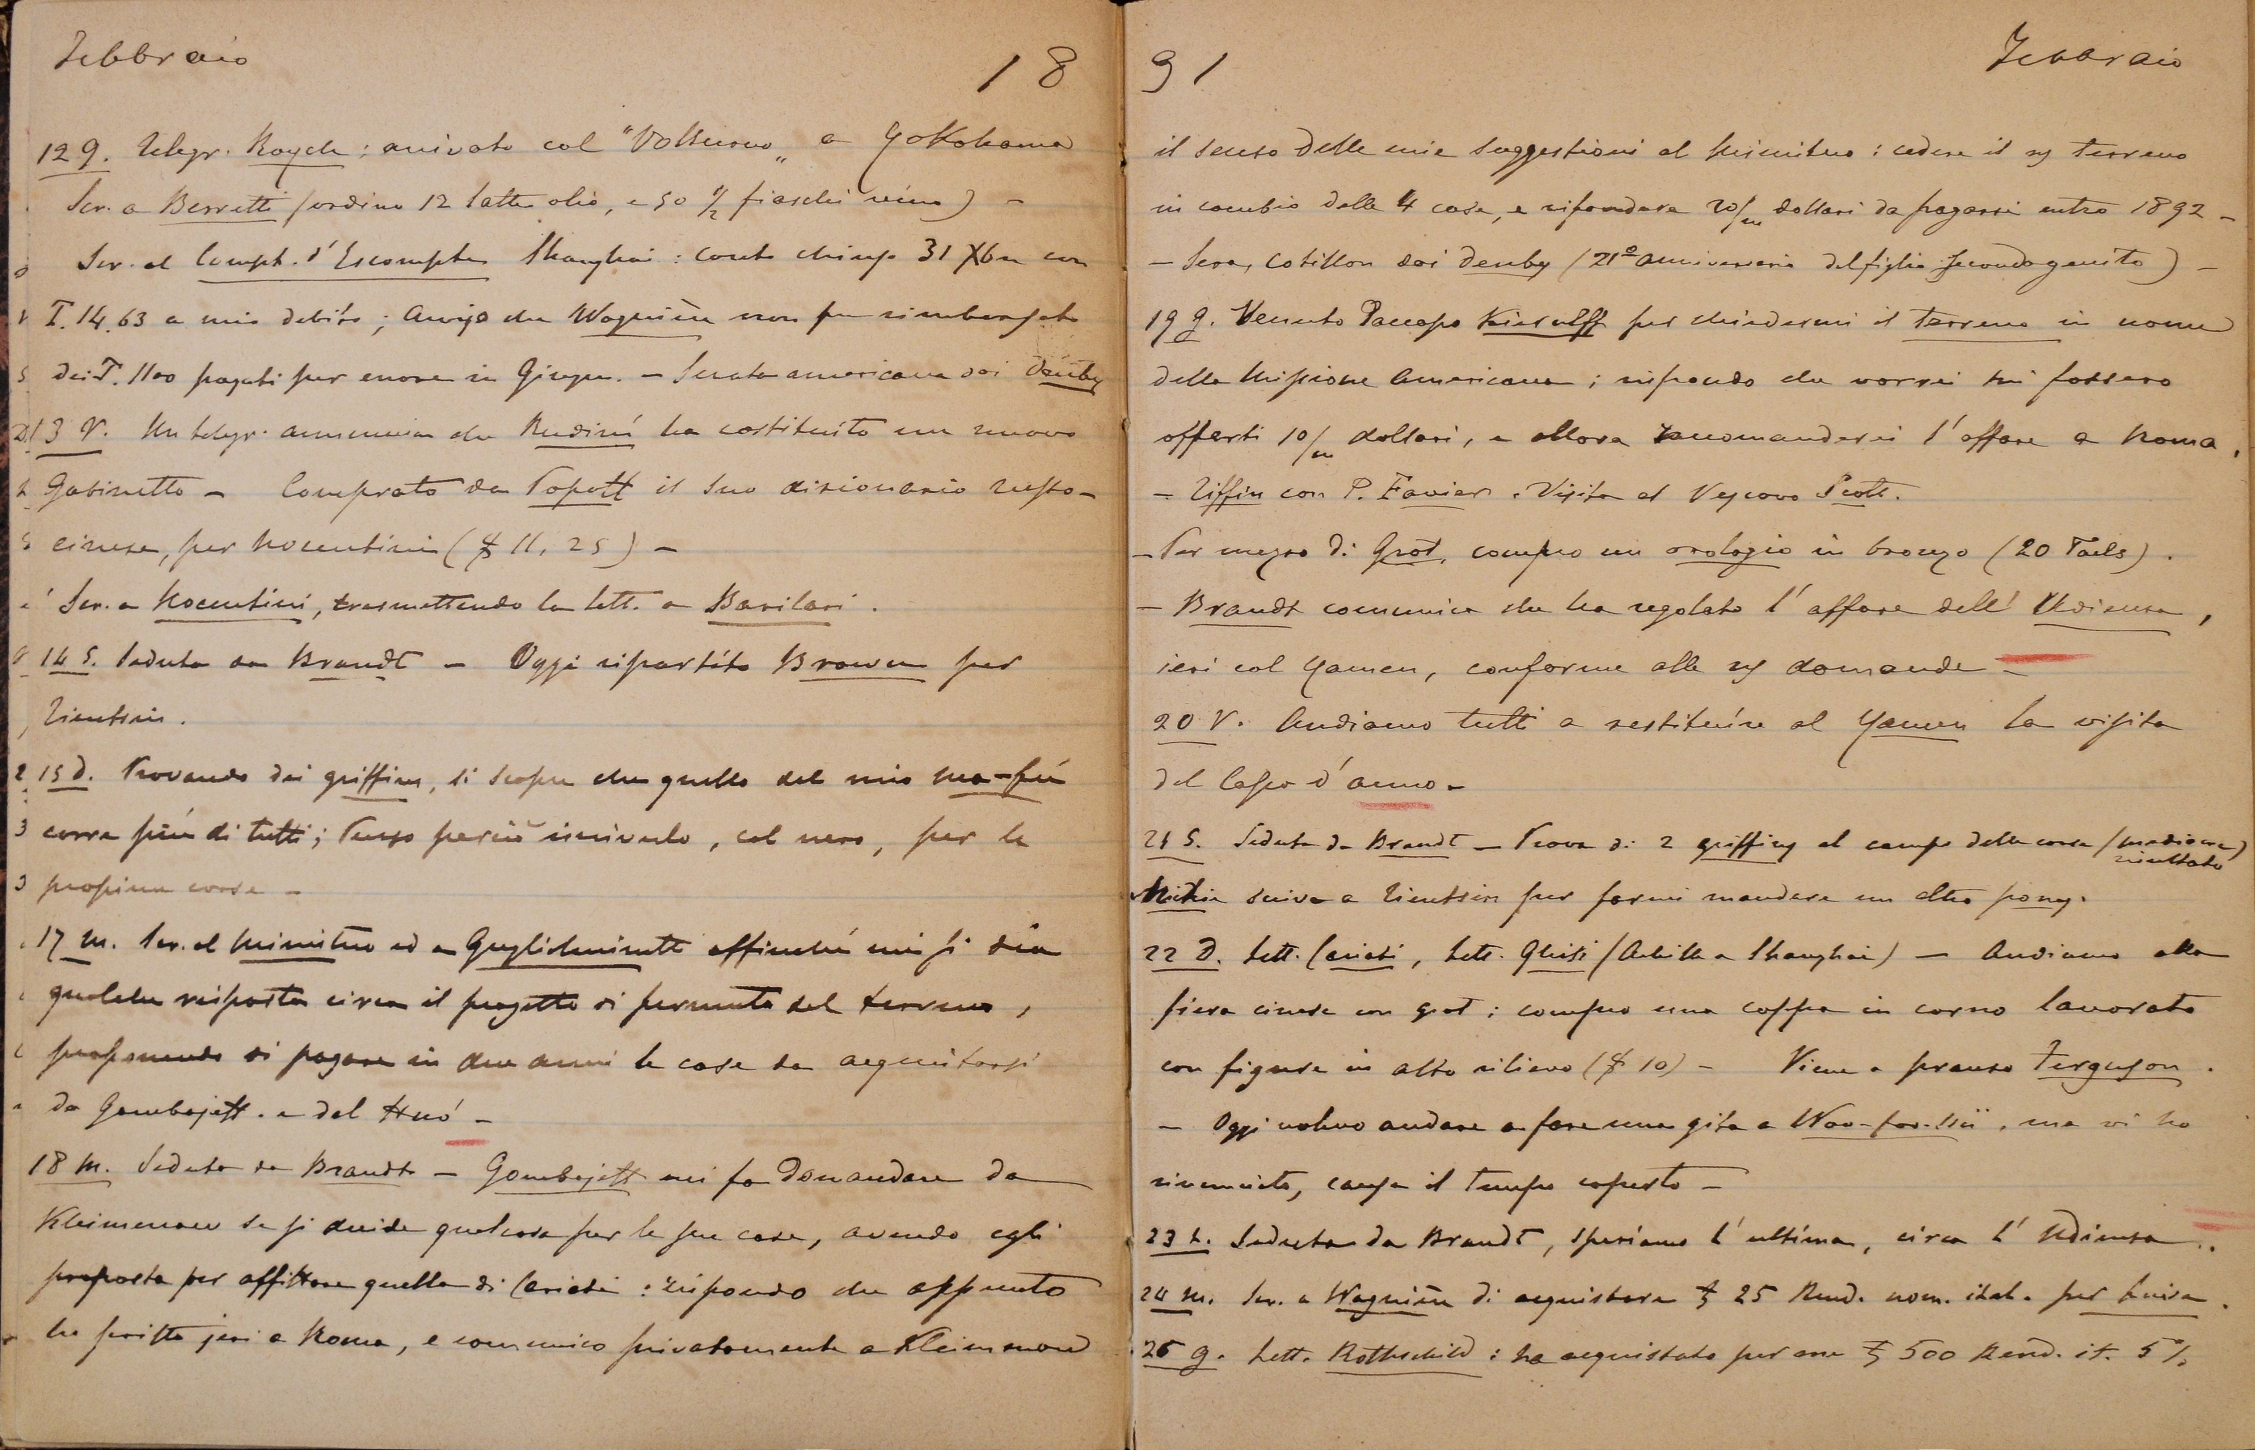 Febbraio 18
12 G. Telegr. Roych: arrivato col "Volturno„ a Yokohama
Scr. a Berretti (ordino 12 latte olio, e 50 1/2 fiaschi vino) –
Scr. al Compt. d'Escompte Shanghai: conto chiuso 31 Xbre con
T. 14.63 a mio debito; avviso che Wagnière non fu rimborsato
dei T. 1100 pagati per errore in Giugno. – Serata americana dai Denby
13 V. Un telegr. annuncia che Rudiní ha costituíto un nuovo
Gabinetto – Comprato da Popoff il suo dizionario russo-
cinese, per Nocentini ($ 11,25) –
Scr. a Nocentini, trasmettendo la lett. a Barilari.
14 S. Seduta da Brandt – Oggi ripartito Brown per
Tientsin.
15 D. Provando dei griffins, si scopre che quello del mio ma-fú
corre piú di tutti; penso perciò iscriverlo, col nero, per le
prossime corse –
17 M. Scr. al Ministro ed a Guglielminetti affinché mi si dia
qualche risposta circa il progetto di permuta del terreno,
proponendo di pagare in due anni le case da acquistarsi
da Gombojeff. e dal Hué –
18 M. Seduta da Brandt – Gombojeff mi fa domandare da
Kleimenow se si decide qualcosa per le sue case, avendo egli
proposta per affittare quella di Cariati: rispondo che appunto
ho scritto jeri a Roma, e comunico privatamente a Kleimenow
91 Febbraio
il senso delle mie suggestioni al Ministro: cedere il ns terreno
in cambio delle 4 case, e rifondere 20/m dollari da pagarsi entro 1892 –
– Sera, cotillon dai Denby (21º anniversario del figlio secondogenito) –
19 G. Venuto Pacapo Kierulff per chiedermi il terreno in nome
della Missione Americana; rispondo che vorrei mi fossero
offerti 10/m dollari, e allora raccomanderei l'affare a Roma.
– Tiffin con P. Favier. Visita al Vescovo Scott.
– Per mezzo di Grot, compro un orologio in bronzo (20 Taels).
– Brandt comunica che ha regolato l'affare dell'Udienza,
ieri col Yamen, conforme alle ns domande –
20 V. Andiamo tutti a restituíre al Yamen la visita
del Capo d'anno –
21 S. Seduta da Brandt – Prova di 2 griffins al campo delle corse (mediocre
risultato)
Michie scrive a Tientsin per farmi mandare un altro pony.
22 D. Lett. Cariati, Lett. Ghisi (Achille a Shanghai) – Andiamo alla
fiera cinese con Grot: compro una coppa in corno lavorato
con figure in alto rilievo ($ 10) – Viene a pranzo Ferguson.
– Oggi volevo andare a fare una gita a Woo-foo-ssü, ma vi ho
rinunciato, causa il tempo coperto –
23 L. Seduta da Brandt, speriamo l'ultima, circa l'Udienza..
24 M. Scr. a Wagnière di acquistare £ 25 Rend. nom. ital. per Luisa.
26 G. Lett. Rothschild: ha acquistato per me £ 500 Rend. it. 5%